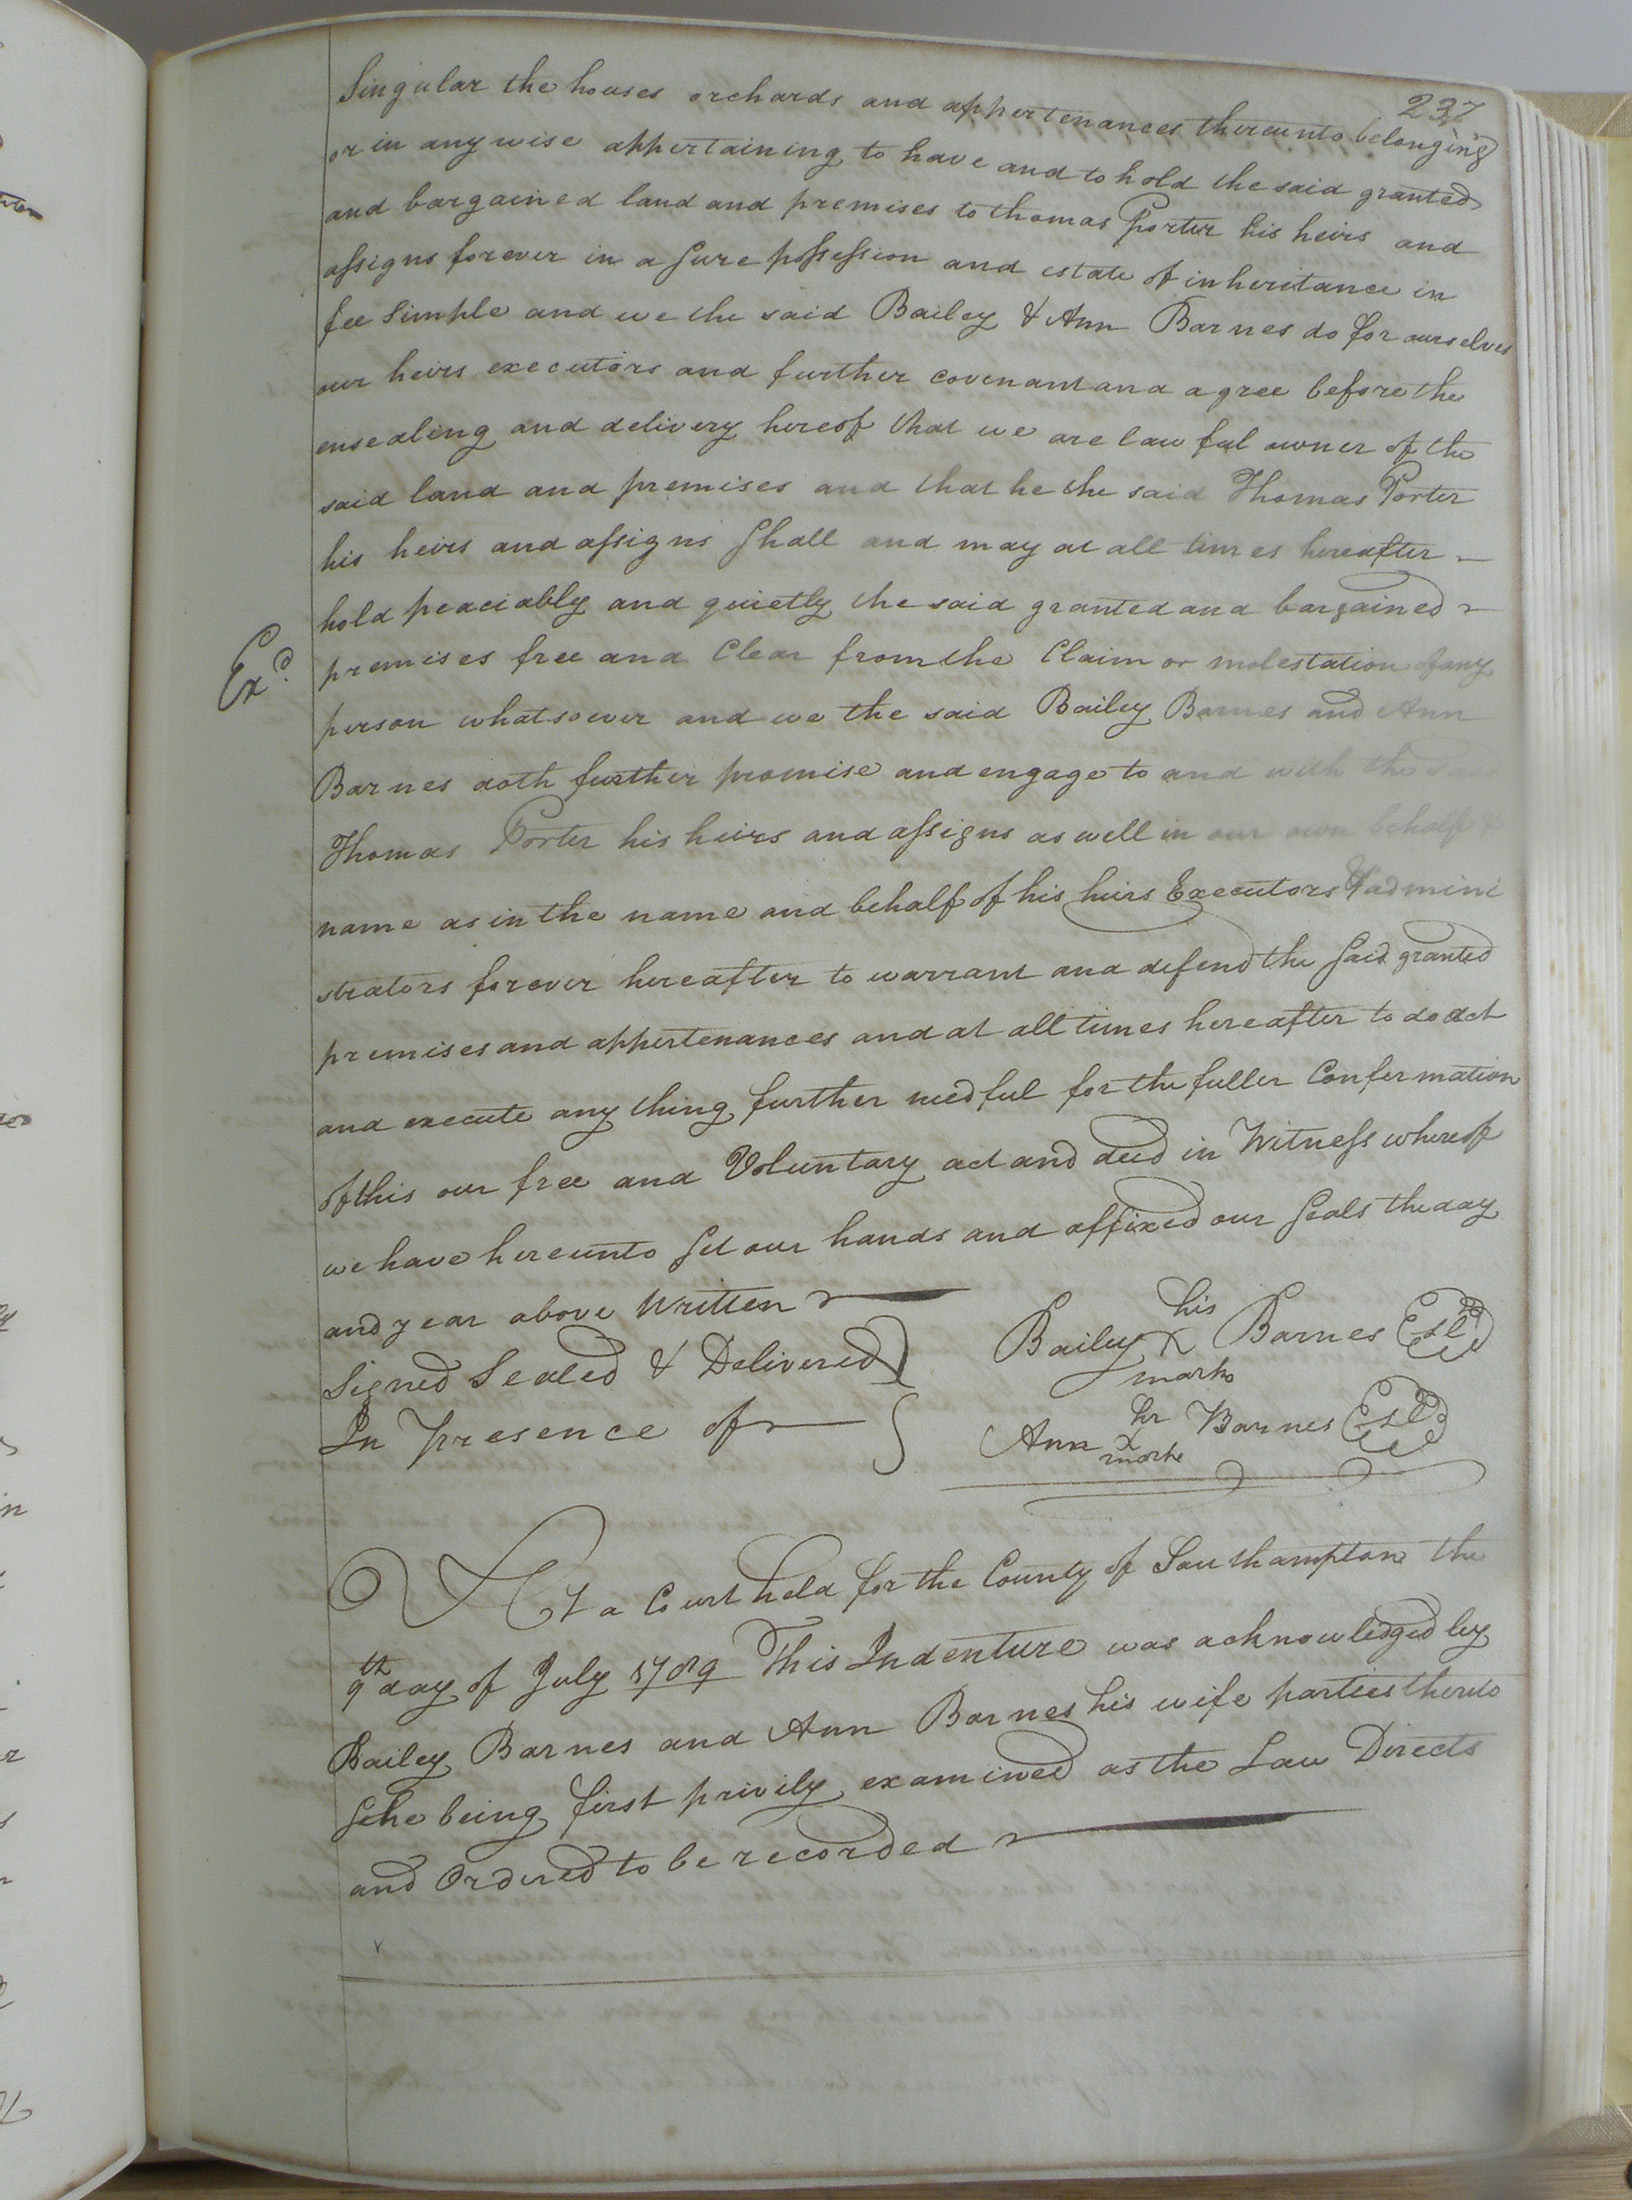 237
Singular the houses orchards and appertenances thereunto belonging
or in any wise appertaining to have and to hold the said granted
and bargained land and premises to thomas Porter his heirs and
assigns forever in a Sure possession and estate of inheritance in
fee Simple and we the said Bailey & Ann Barnes do for ourselves
our heirs executors and further covenant and agree before the
ensealing and delivery hereof that we are lawful owner of the
said land and premises and that he the said Thomas Porter
his heirs and assigns Shall and may at all times hereafter
hold peaciably and quietly the said granted and bargained
Exd. premises free and Clear from the Claim or molestation of any
person whatsoever and we the said Bailey Barnes and Ann
Barnes doth further promise and engage to and with the s
Thomas Porter his heirs and assigns as well in our own behalf &
name as in the name and behalf of his heirs Executors & admini
strators forever hereafter to warrant and defend the Said granted
premises and appertenances and at all times hereafter to do act
and execute any thing further needful for the fuller Confermation
of this our free and Voluntary act and deed in Witness whereof
we have hereunto Set our hands and affixed our Seals the day
and year above Written
Signed Sealed & Delivered
In Presence of
his
Bailey X Barnes
mark
hr
Ann X Barnes
marke
At a Court held for the County of Southampton the
9th day of July 1789 This Indenture was acknowledged by
Bailey Barnes and Ann Barnes his wife parties thereto
She being first privily examined as the Law Directs
and Ordered to be recorded